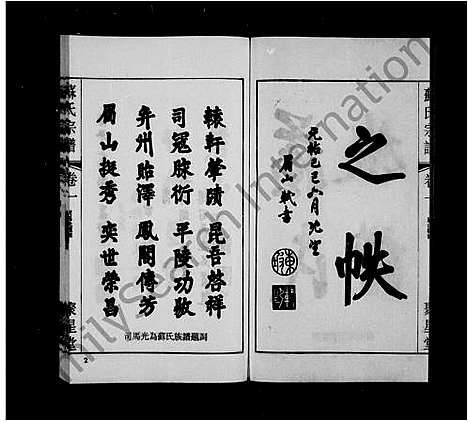 蘇氏宗譜
卷一
聚星堂
之帙
元祐己巳六月沈望
眉山軾書
轅軒肇蹟 昆吾啓祥
司冦脉衍 平陵功敬
并州貽澤 鳳閣傳芳
眉山挺秀 奕世榮昌
司馬光為蘇氏族譜題詞
蘇氏宗譜
卷一
聚星堂
2
FamilySearch International